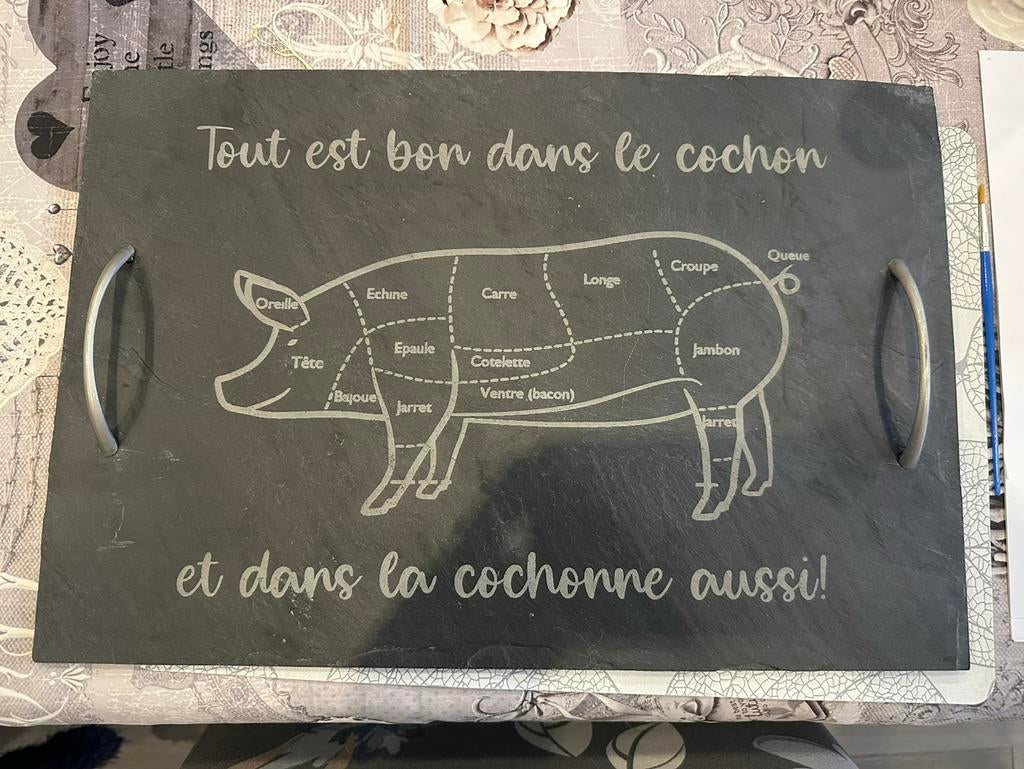 Enjoy
the
little
things
Tout est bon dans le cochon
Queue
Croupe
Longe
Echine
Carre
Oreille
Epaule
Jambon
Tête
Cotelette
Ventre (bacon)
Bajoue
Jarret
Jarret
et dans la cochonne aussi!